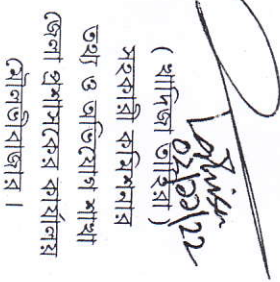 ০৮/১১/২২
(খাদিজা তাহিরা)
সহকারী কমিশনার
তথ্য ও অভিযোগ শাখা
জেলা প্রশাসকের কার্যালয়
মৌলভীবাজার।